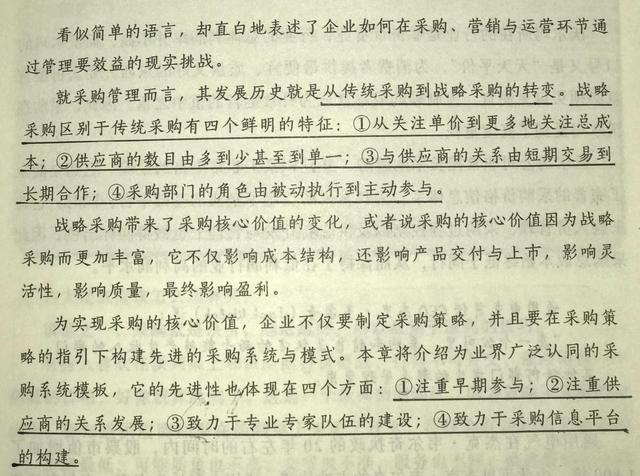 看似简单的语言，却直白地表述了企业如何在采购、营销与运营环节通
过管理要效益的现实挑战。
就采购管理而言，其发展历史就是从传统采购到战略采购的转变。战略
采购区别于传统采购有四个鲜明的特征：①从关注单价到更多地关注总成
本；②供应商的数目由多到少甚至到单一；③与供应商的关系由短期交易到
长期合作；④采购部门的角色由被动执行到主动参与。
战略采购带来了采购核心价值的变化，或者说采购的核心价值因为战略
采购而更加丰富，它不仅影响成本结构，还影响产品交付与上市，影响灵
活性，影响质量，最终影响盈利。
为实现采购的核心价值，企业不仅要制定采购策略，并且要在采购策
略的指引下构建先进的采购系统与模式。本章将介绍为业界广泛认同的采
购系统模板，它的先进性也体现在四个方面：①注重早期参与；②注重供
应商的关系发展；③致力于专业专家队伍的建设；④致力于采购信息平台
的构建。